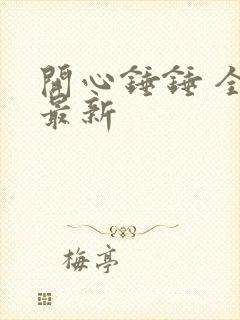 開心錘錘 全
最新
梅亭